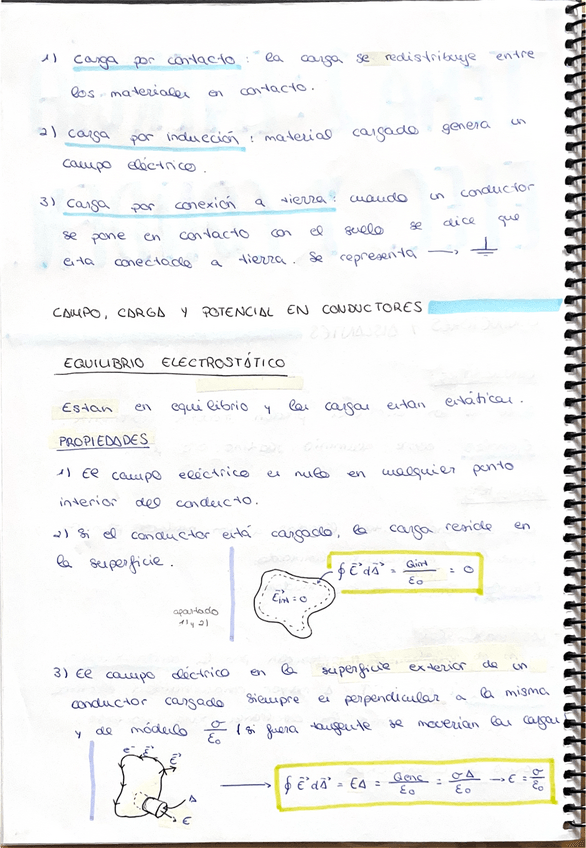 1) Carga por contacto: la carga se redistribuye entre
los materiales en contacto.
2) Carga por inducción: material cargado genera un
campo eléctrico.
3) Carga por conexión a tierra: cuando un conductor
se pone en contacto con el suelo se dice que
esta conectado a tierra. Se representa →
CAMPO, CARGA Y POTENCIAL EN CONDUCTORES
EQUILIBRIO ELECTROSTÁTICO
Estan en equilibrio y las cargas estan estáticas.
PROPIEDADES
1) El campo eléctrico es nulo en cualquier punto
interior del conducto.
2) Si el conductor está cargado, la carga reside en
la superficie.
∮ E⃗ dA⃗ = Qint/ε₀ = 0
E⃗int = 0
apartado
1) y 2)
3) El campo eléctrico en la superficie exterior de un
conductor cargado siempre es perpendicular a la misma
y de módulo σ/ε₀ (si fuera tangente se moverían las cargas
e⁻ E⃗ E⃗
A
E
→ ∮ E⃗ dA⃗ = EA = Qenc/ε₀ = σA/ε₀ → E = σ/ε₀